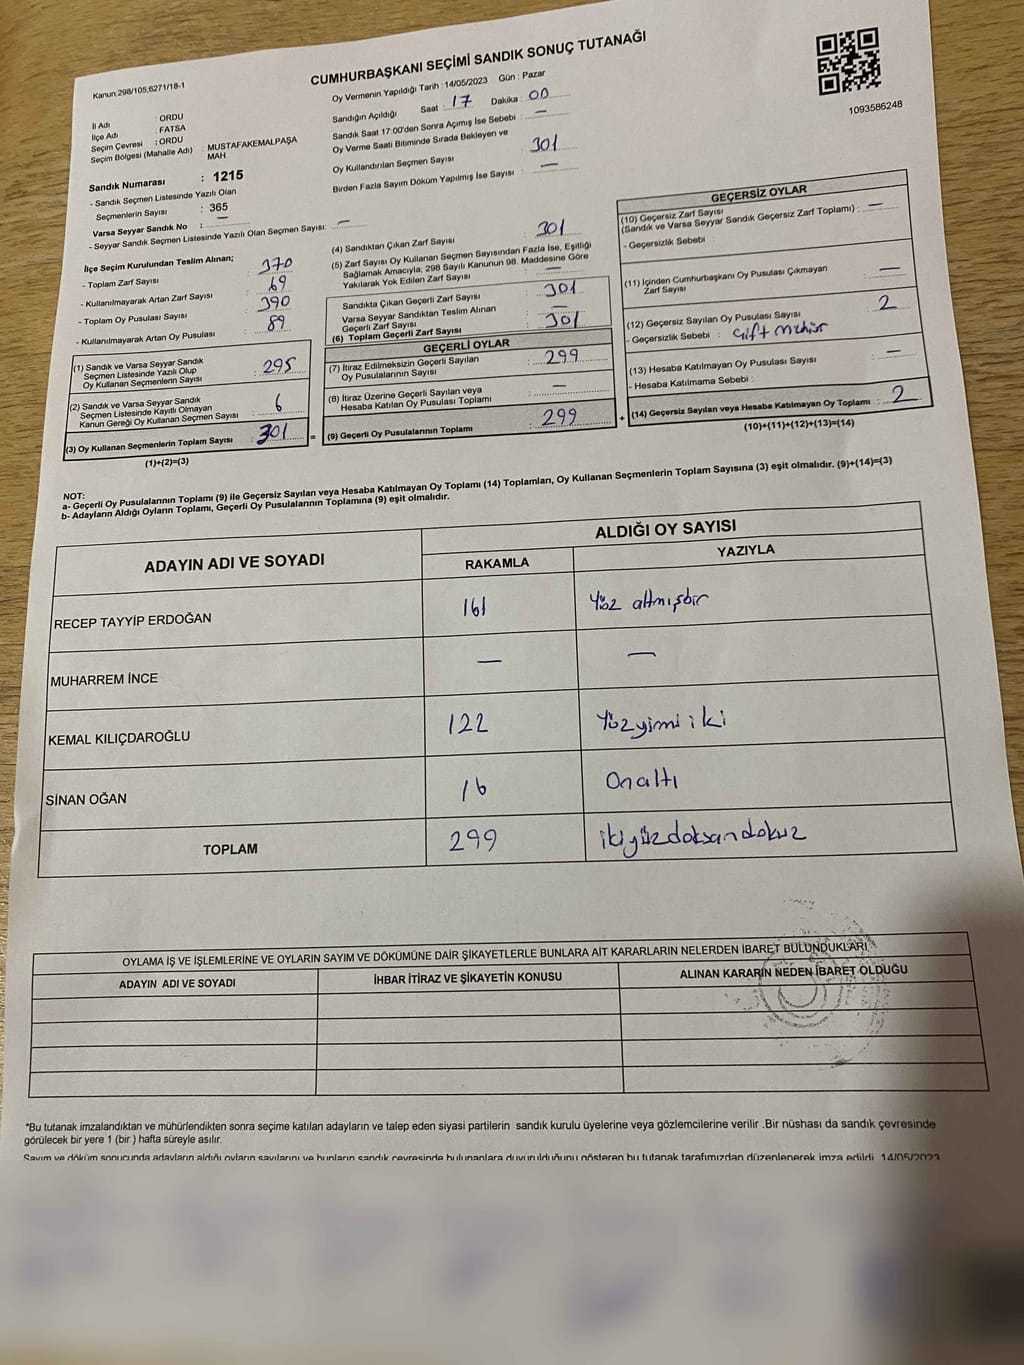 Kanun:298/105,6271/18-1
CUMHURBAŞKANI SEÇİMİ SANDIK SONUÇ TUTANAĞI
1093586248
İl Adı : ORDU
İlçe Adı : FATSA
Seçim Çevresi : ORDU
Seçim Bölgesi (Mahalle Adı) : MUSTAFAKEMALPAŞA
MAH
Sandık Numarası : 1215
- Sandık Seçmen Listesinde Yazılı Olan
Seçmenlerin Sayısı : 365
Varsa Seyyar Sandık No : —
- Seyyar Sandık Seçmen Listesinde Yazılı Olan Seçmen Sayısı: —
Oy Vermenin Yapıldığı Tarih : 14/05/2023 Gün : Pazar
Sandığın Açıldığı Saat : 17 Dakika : 00
Sandık Saat 17:00'den Sonra Açımış İse Sebebi : —
Oy Verme Saati Bitiminde Sırada Bekleyen ve
Oy Kullandırılan Seçmen Sayısı 301
Birden Fazla Sayım Döküm Yapılmış İse Sayısı : —
İlçe Seçim Kurulundan Teslim Alınan;
- Toplam Zarf Sayısı : 370
- Kullanılmayarak Artan Zarf Sayısı : 69
- Toplam Oy Pusulası Sayısı : 390
- Kullanılmayarak Artan Oy Pusulası : 89
(1) Sandık ve Varsa Seyyar Sandık
Seçmen Listesinde Yazılı Olup
Oy Kullanan Seçmenlerin Sayısı : 295
(2) Sandık ve Varsa Seyyar Sandık
Seçmen Listesinde Kayıtlı Olmayan
Kanun Gereği Oy Kullanan Seçmen Sayısı : 6
(3) Oy Kullanan Seçmenlerin Toplam Sayısı : 301
(1)+(2)=(3)
=
(4) Sandıktan Çıkan Zarf Sayısı : 301
(5) Zarf Sayısı Oy Kullanan Seçmen Sayısından Fazla İse, Eşitliği
Sağlamak Amacıyla; 298 Sayılı Kanunun 98. Maddesine Göre
Yakılarak Yok Edilen Zarf Sayısı : —
Sandıkta Çıkan Geçerli Zarf Sayısı : 301
Varsa Seyyar Sandıktan Teslim Alınan
Geçerli Zarf Sayısı : —
(6) Toplam Geçerli Zarf Sayısı : 301
GEÇERLİ OYLAR
(7) İtiraz Edilmeksizin Geçerli Sayılan
Oy Pusulalarının Sayısı : 299
(8) İtiraz Üzerine Geçerli Sayılan veya
Hesaba Katılan Oy Pusulası Toplamı : —
(9) Geçerli Oy Pusulalarının Toplamı : 299
+
GEÇERSİZ OYLAR
(10) Geçersiz Zarf Sayısı
(Sandık ve Varsa Seyyar Sandık Geçersiz Zarf Toplamı) : —
- Geçersizlik Sebebi :
(11) İçinden Cumhurbaşkanı Oy Pusulası Çıkmayan
Zarf Sayısı : —
(12) Geçersiz Sayılan Oy Pusulası Sayısı : 2
- Geçersizlik Sebebi : Çift mühür
(13) Hesaba Katılmayan Oy Pusulası Sayısı : —
- Hesaba Katılmama Sebebi :
(14) Geçersiz Sayılan veya Hesaba Katılmayan Oy Toplamı : 2
(10)+(11)+(12)+(13)=(14)
NOT:
a- Geçerli Oy Pusulalarının Toplamı (9) ile Geçersiz Sayılan veya Hesaba Katılmayan Oy Toplamı (14) Toplamları, Oy Kullanan Seçmenlerin Toplam Sayısına (3) eşit olmalıdır. (9)+(14)=(3)
b- Adayların Aldığı Oyların Toplamı, Geçerli Oy Pusulalarının Toplamına (9) eşit olmalıdır.
ADAYIN ADI VE SOYADI ALDIĞI OY SAYISI
RAKAMLA YAZIYLA
RECEP TAYYİP ERDOĞAN 161 Yüz altmışbir
MUHARREM İNCE — —
KEMAL KILIÇDAROĞLU 122 Yüzyimi iki
SİNAN OĞAN 16 Onaltı
TOPLAM 299 ikiyüzdoksandokuz
OYLAMA İŞ VE İŞLEMLERİNE VE OYLARIN SAYIM VE DÖKÜMÜNE DAİR ŞİKAYETLERLE BUNLARA AİT KARARLARIN NELERDEN İBARET BULUNDUKLARI
ADAYIN ADI VE SOYADI İHBAR İTİRAZ VE ŞİKAYETİN KONUSU ALINAN KARARIN NEDEN İBARET OLDUĞU
*Bu tutanak imzalandıktan ve mühürlendikten sonra seçime katılan adayların ve talep eden siyasi partilerin sandık kurulu üyelerine veya gözlemcilerine verilir .Bir nüshası da sandık çevresinde
görülecek bir yere 1 (bir ) hafta süreyle asılır.
Sayım ve döküm sonucunda adayların aldığı oyların sayılarını ve bunların sandık çevresinde bulunanlara duyurulduğunu gösteren bu tutanak tarafımızdan düzenlenerek imza edildi. 14/05/2023